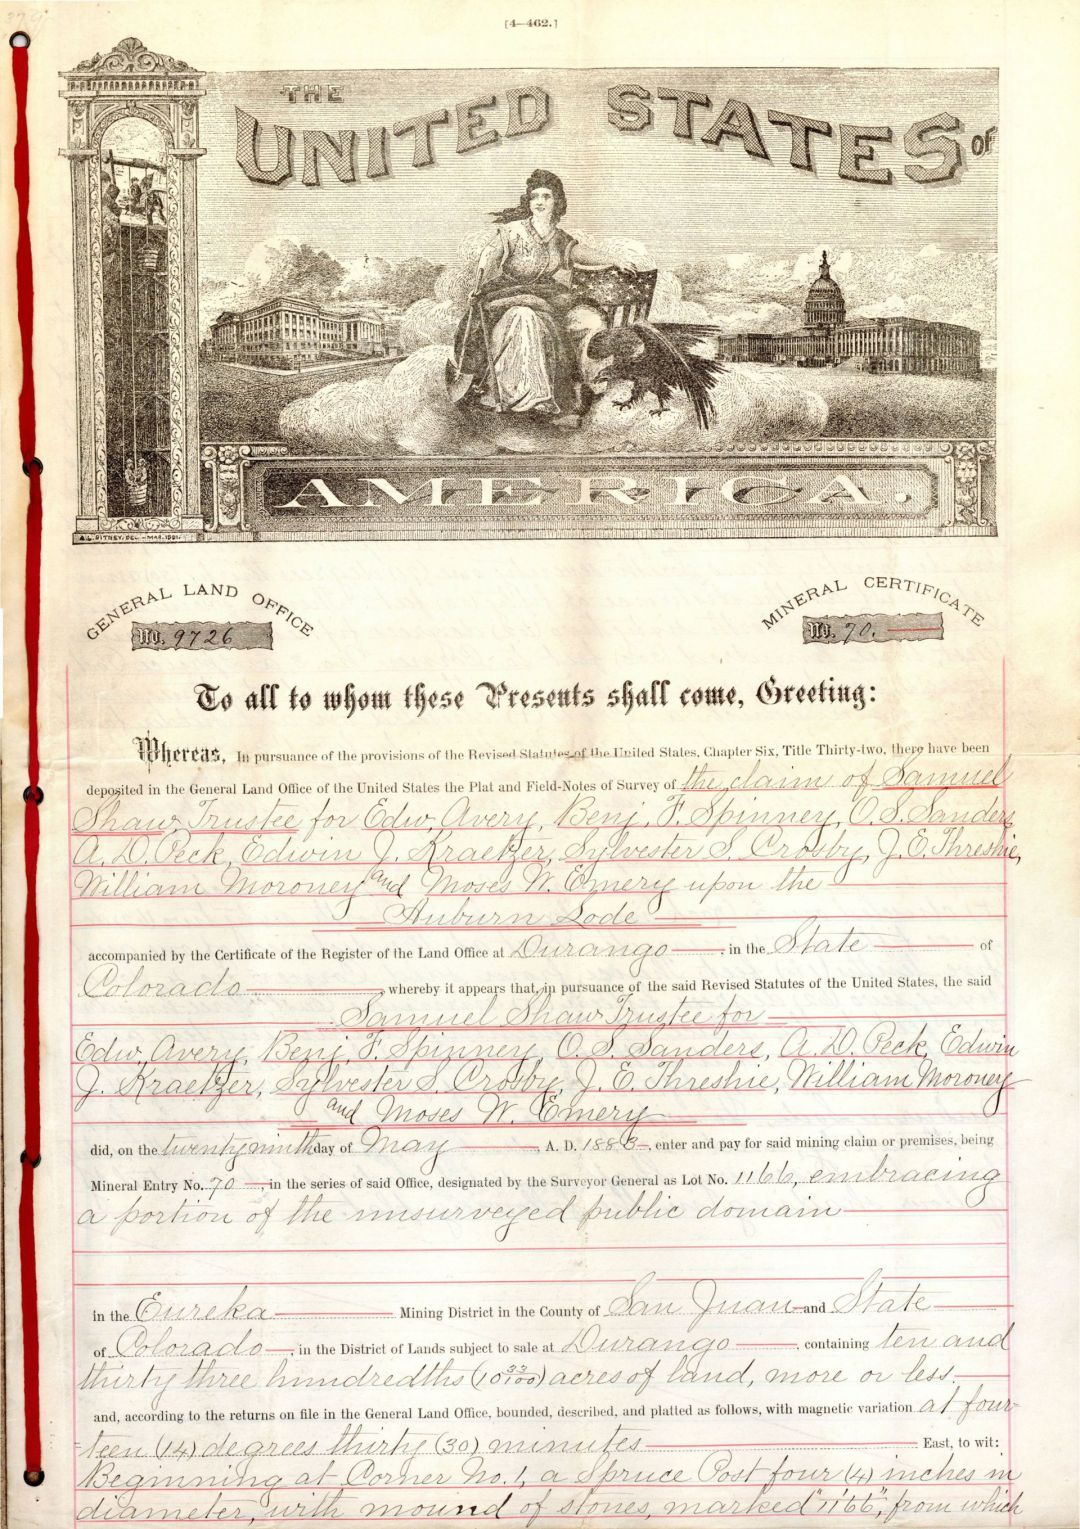 379
[4—462.]
THE
UNITED STATES OF
AMERICA.
A.L. PITNEY, DEL. – MAR. 1881.
GENERAL LAND OFFICE
No. 9726
MINERAL CERTIFICATE
No. 70.
To all to whom these Presents shall come, Greeting:
Whereas, In pursuance of the provisions of the Revised Statutes of the United States, Chapter Six, Title Thirty-two, there have been
deposited in the General Land Office of the United States the Plat and Field-Notes of Survey of the claim of Samuel
Shaw, Trustee for Edw. Avery, Benj. F. Spinney, O. S. Sanders,
A. D. Peck, Edwin J. Kraetzer, Sylvester S. Crosby, J. E. Threshie,
William Moroney and Moses W. Emery upon the
Auburn Lode
accompanied by the Certificate of the Register of the Land Office at Durango, in the State of
Colorado, whereby it appears that, in pursuance of the said Revised Statutes of the United States, the said
Samuel Shaw Trustee for
Edw. Avery, Benj. F. Spinney, O. S. Sanders, A. D. Peck, Edwin
J. Kraetzer, Sylvester S. Crosby, J. E. Threshie, William Moroney
and Moses W. Emery
did, on the twenty ninth day of May, A. D. 1883, enter and pay for said mining claim or premises, being
Mineral Entry No. 70, in the series of said Office, designated by the Surveyor General as Lot No. 1166, embracing
a portion of the unsurveyed public domain
in the Eureka Mining District in the County of San Juan and State
of Colorado, in the District of Lands subject to sale at Durango, containing ten and
thirty three hundredths (10 33/100) acres of land, more or less.
and, according to the returns on file in the General Land Office, bounded, described, and platted as follows, with magnetic variation at four-
teen (14) degrees thirty (30) minutes East, to wit:
Beginning at Corner No. 1, a Spruce Post four (4) inches in
diameter, with mound of stones, marked "1166", from which